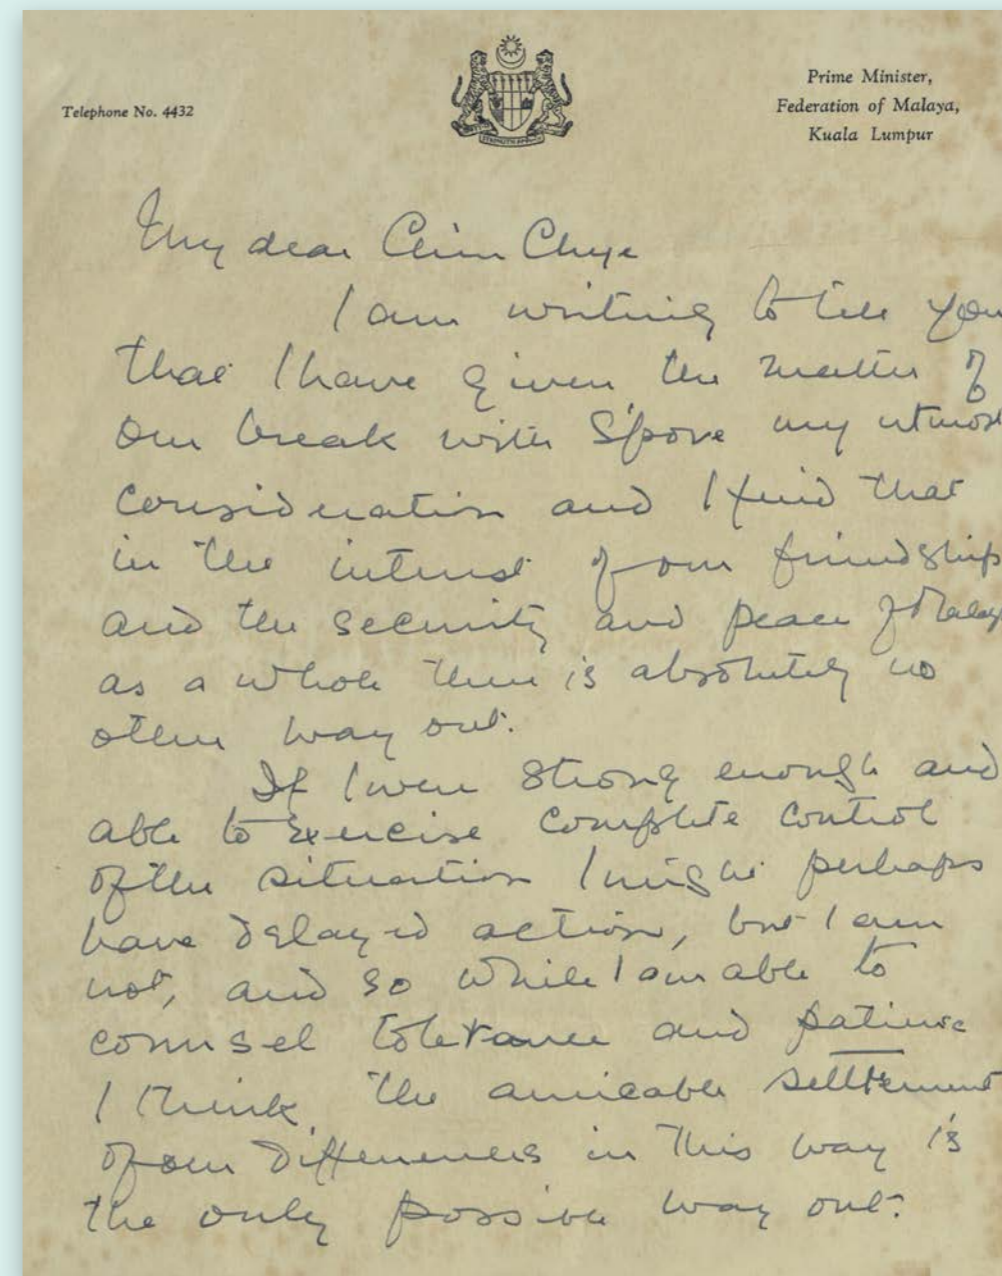 Telephone No. 4432
Prime Minister,
Federation of Malaya,
Kuala Lumpur
My dear Chin Chye
I am writing to tell you
that I have given the matter of
our break with S'pore my utmost
consideration and I find that
in the interest of our friendship
and the security and peace of Malay
as a whole there is absolutely no
other way out.
If I were strong enough and
able to exercise complete control
of the situation I might perhaps
have delayed action, but I am
not, and so while I am able to
counsel tolerance and patience
I think the amicable settlement
of our differences in this way is
the only possible way out.